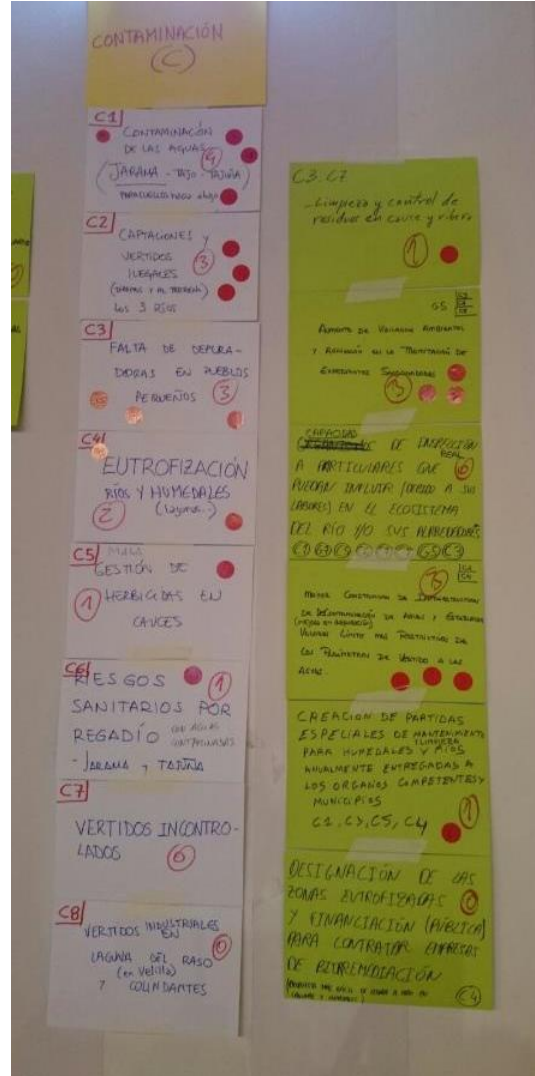 CONTAMINACIÓN
(C)
C1
CONTAMINACIÓN
DE LAS AGUAS
4
(JARAMA - TAJO - TAJUÑA)
PARACUELLOS HACIA abajo
C2
CAPTACIONES Y
VERTIDOS
3
ILEGALES
LOS 3 RÍOS
C3
FALTA DE DEPURA-
DORAS EN PUEBLOS
PEQUEÑOS
3
C4
EUTROFIZACIÓN
RÍOS Y HUMEDALES
2
C5
MALA
GESTIÓN DE
1
HERBICIDAS EN
CAUCES
C6
RIESGOS
1
SANITARIOS POR
REGADÍO CON AGUAS
CONTAMINADAS
- JARAMA Y TAJUÑA
C7
VERTIDOS INCONTRO-
LADOS
0
C8
VERTIDOS INDUSTRIALES
EN
0
LAGUNA DEL RASO
(en Velilla)
Y COLINDANTES
C3. C7
- Limpieza y control de
residuos en cauce y ribera
1
G5
AUMENTO DE VIGILANCIA AMBIENTAL
Y AGILIZACIÓN EN LA TRAMITACIÓN DE
EXPEDIENTES SANCIONADORES
3
CAPACIDAD
DE INSPECCIÓN
REAL
A PARTICULARES QUE
0
PUEDAN INFLUIR (DEBIDO A SUS
LABORES) EN EL ECOSISTEMA
DEL RÍO Y/O SUS ALREDEDORES
3
MAYOR CONSTRUCCIÓN DE INFRAESTRUCTURAS
DE DESCONTAMINACIÓN DE AGUAS Y ESTABLECER
VALORES LÍMITE MÁS RESTRICTIVOS DE
LOS PARÁMETROS DE VERTIDO A LAS
AGUAS.
CREACION DE PARTIDAS
ESPECIALES DE MANTENIMIENTO
Y LIMPIEZA
PARA HUMEDALES Y RÍOS
ANUALMENTE ENTREGADAS A
LOS ORGANOS COMPETENTES Y
MUNICIPIOS
1
C2, C3, C5, C4
DESIGNACIÓN DE LAS
ZONAS EUTROFIZADAS
0
Y FINANCIACIÓN (PÚBLICA)
PARA CONTRATAR EMPRESAS
DE BIORREMEDIACIÓN
C4